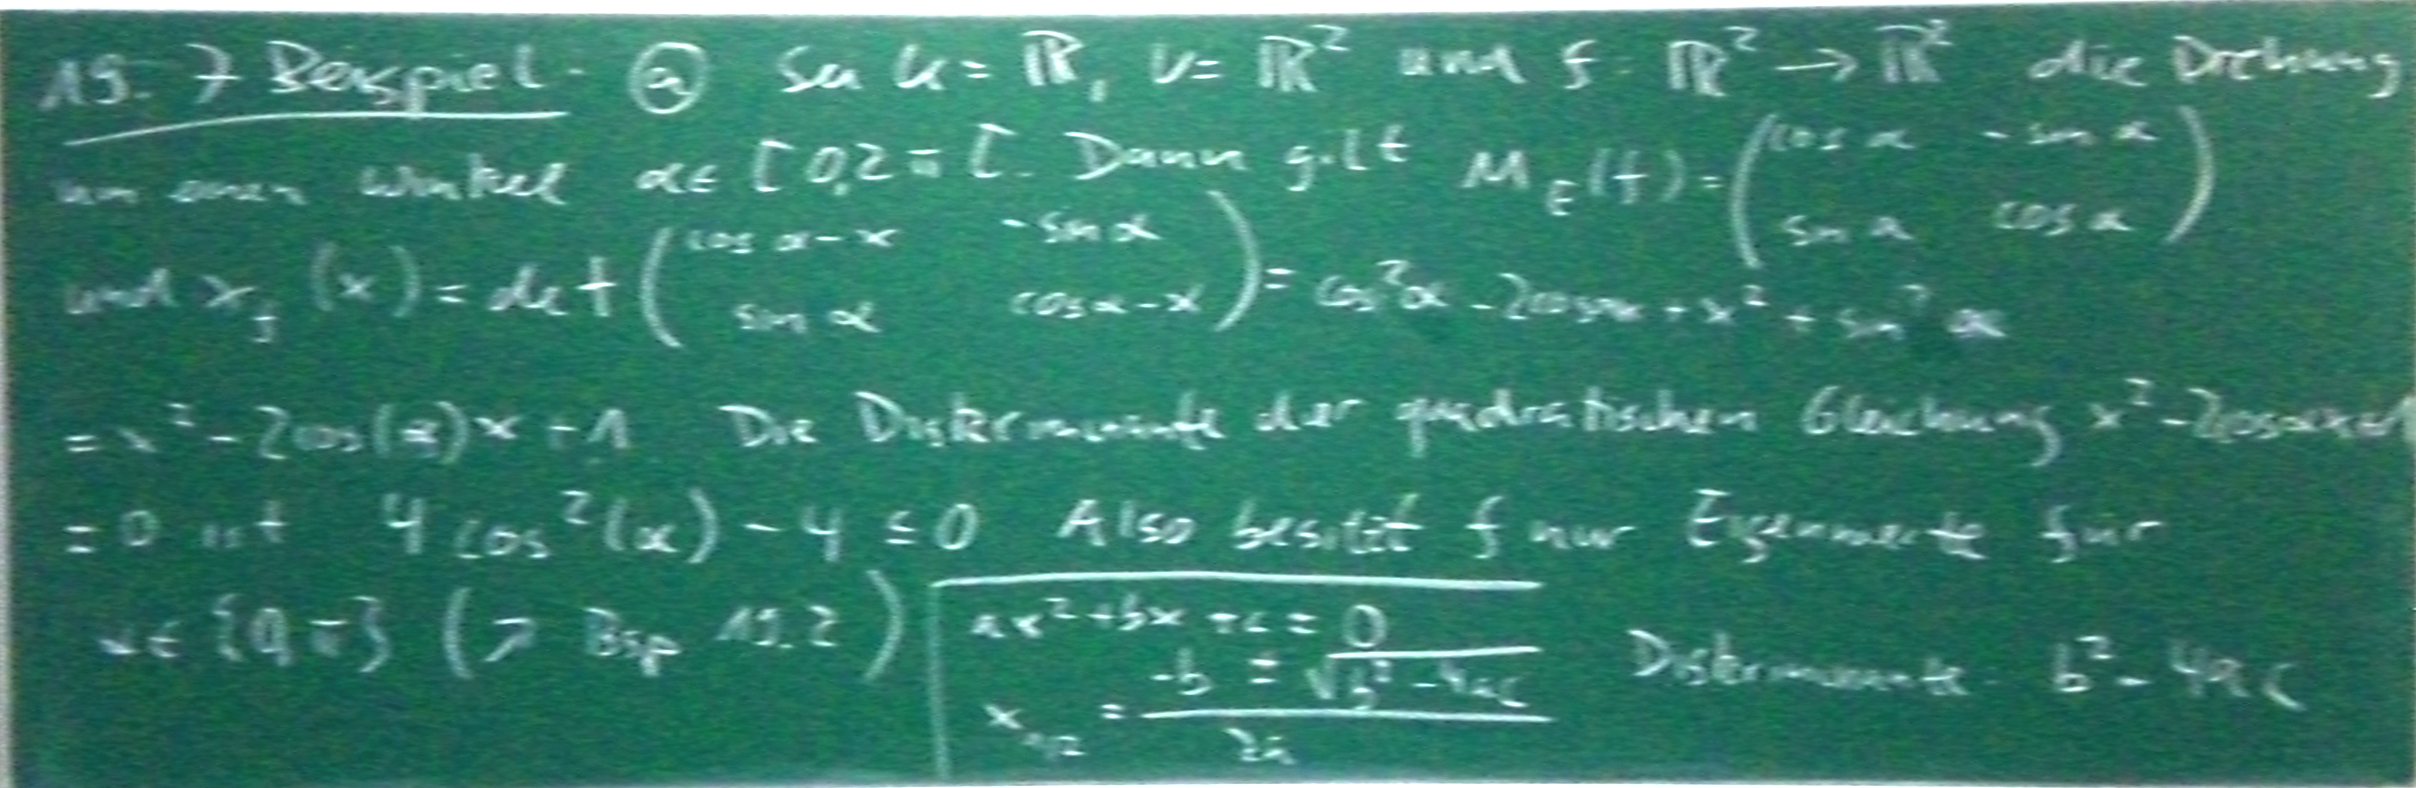 19.7 Beispiel. ⓐ Sei K = ℝ, V = ℝ² und f: ℝ² → ℝ² die Drehung
um einen Winkel α ∈ [0,2π[. Dann gilt M_E(f) = (cos α  - sin α ; sin α  cos α)
und χ_f (x) = det (cos α - x  - sin α ; sin α  cos α - x) = cos²α - 2cosαx + x² + sin²α
= x² - 2cos(α)x + 1 Die Diskriminante der quadratischen Gleichung x² - 2cosαx+1
= 0 ist 4 cos²(α) - 4 ≤ 0 Also besitzt f nur Eigenwerte für
α ∈ {0, π} (↗ Bsp 19.2)
ax² + bx + c = 0
x_{1/2} = (-b ± √(b² - 4ac)) / 2a
Diskriminante: b² - 4ac